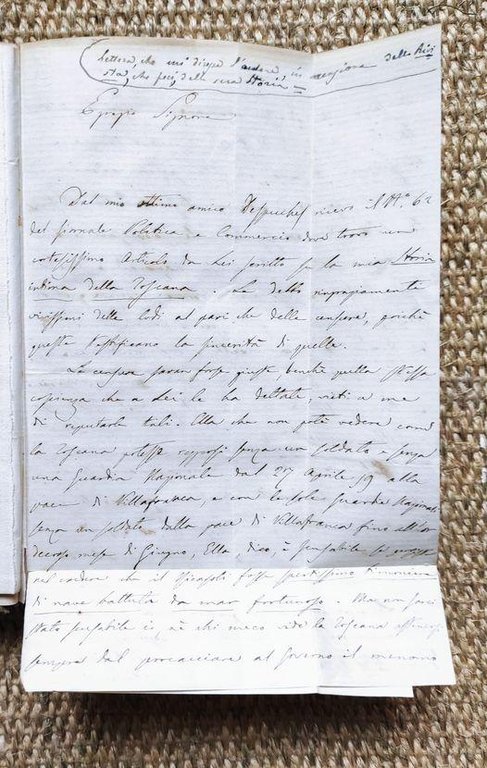 Lettera, che mi diresse l'autore in occasione della Rivi
sta, che feci, della sua Storia
Egregio Signore
Dal mio ottimo amico ricevo il N.º 62
del giornale Politica e Commercio dove trovo un
cortesissimo Articolo da Lei scritto su la mia Storia
intima della Toscana. Le debbo ringraziamenti
vivissimi delle lodi al pari che delle censure, poichè
queste testificano la sincerità di quelle.
Le censure saran forse giuste benchè quella stessa
coscienza che a Lei le ha dettate, vieti a me
di reputarle tali. Ella che non potè vedere come
la Toscana potesse reggersi senza un soldato e senza
una Guardia Nazionale dal 27 Aprile 59 alla
pace di Villafranca, e con le sole Guardie Nazionali
senza un soldato dalla pace di Villafranca fino all'
mese di Giugno, Ella, dico, è scusabile se
nel credere che il Ricasoli fosse espertissimo timoniere
di nave battuta da mar fortunoso. Ma non sarei
stato scusabile io nè chi meco vide la Toscana
sempre dal procacciare al Governo il menomo